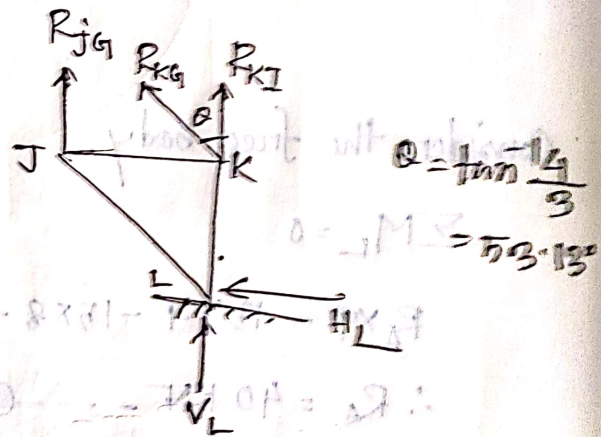 R_jG R_KG R_KI
θ
J K
θ = tan⁻¹ 4/3
= 53.13°
L
H_L
V_L